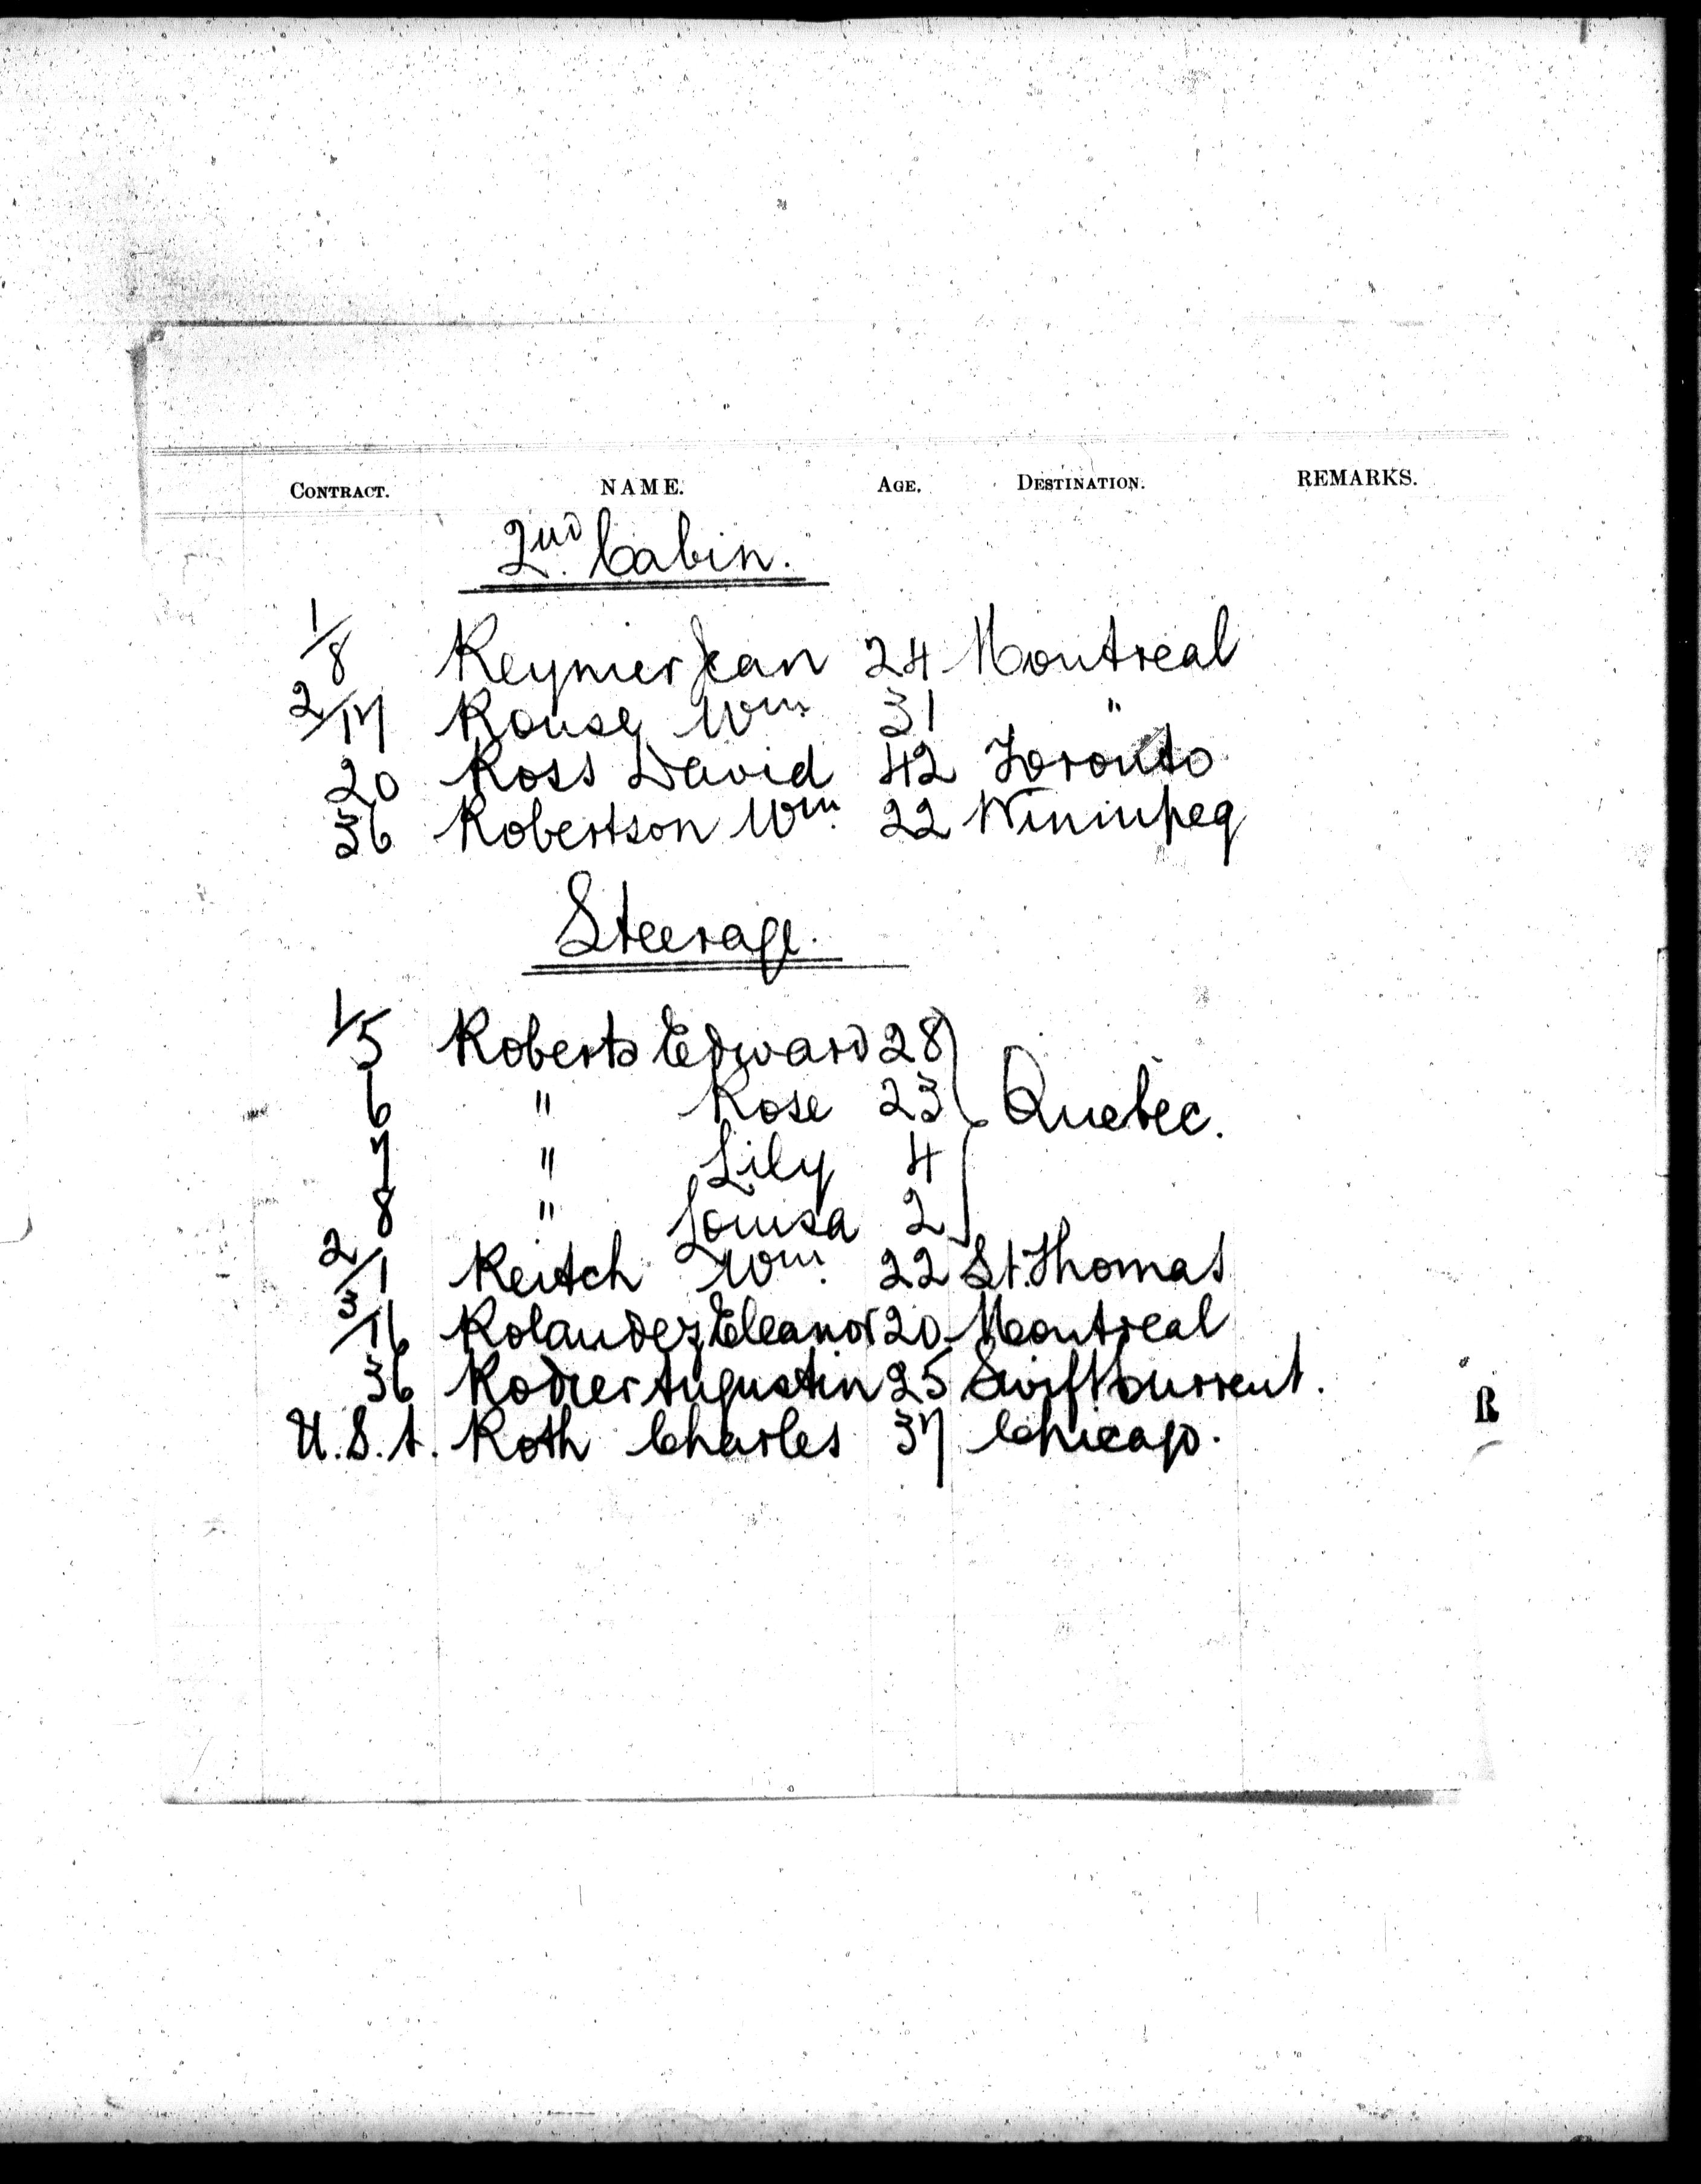 CONTRACT. NAME. AGE. DESTINATION. REMARKS.
2nd. Cabin.
1/8 Reynier Jean 24 Montreal
2/17 Rouse Wm 31 "
20 Ross David 42 Toronto
36 Robertson Wm. 22 Winnipeg
Steerage.
1/5 Roberts Edward 28
6 " Rose 23 Quebec.
7 " Lily 4
8 " Louisa 2
2/1 Reitch Wm. 22 St. Thomas
3/16 Rolandez Eleanor 20 Montreal
36 Rodier Augustin 25 Swift Current.
U.S.A. Roth Charles 37 Chicago.
R